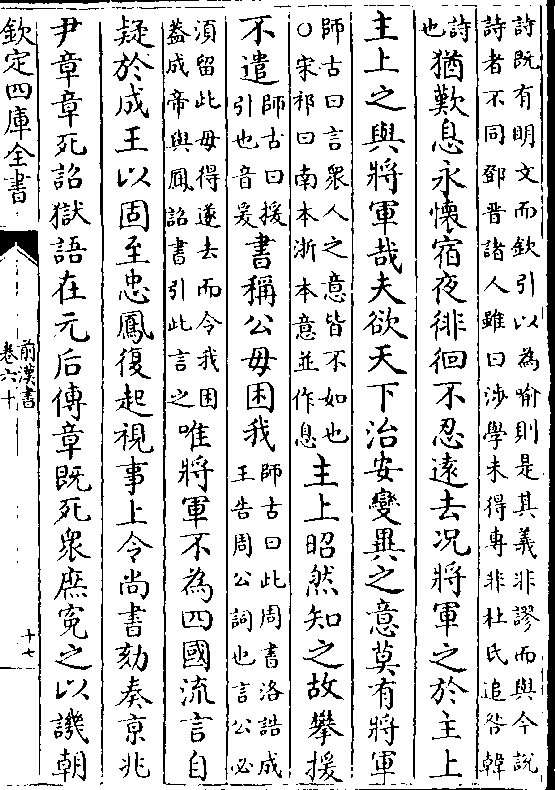 詩既有明文而欽引以為喻則是其義非謬而與今說
詩者不同鄧晉諸人雖曰涉學未得專非杜氏追咎韓
詩也
猶歎息永懷宿夜徘徊不忍遠去况將軍之於主上
主上之與將軍哉夫欲天下治安變異之意莫有將軍
師古曰言衆人之意皆不如也
○宋祁曰南本浙本意並作息
主上昭然知之故攀援
不遣
師古曰援
引也音爰
書稱公毋困我
師古曰此周書洛誥成
王告周公詞也言公必
須留此毋得遂去而令我困
葢成帝與鳳詔書引此言之
唯將軍不為四國流言自
疑於成王以固至忠鳳復起視事上令尚書劾奏京兆
尹章章死詔獄語在元后傳章既死衆庶寃之以譏朝
欽定四庫全書
前漢書
卷六十
十七